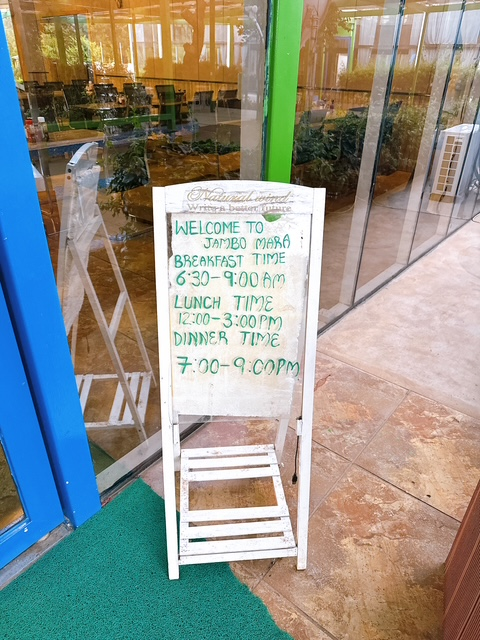 Natural wind
Write a better future
WELCOME TO
JAMBO MARA
BREAKFAST TIME
6:30-9:00 AM
LUNCH TIME
12:00-3:00PM
DINNER TIME
7:00-9:00PM